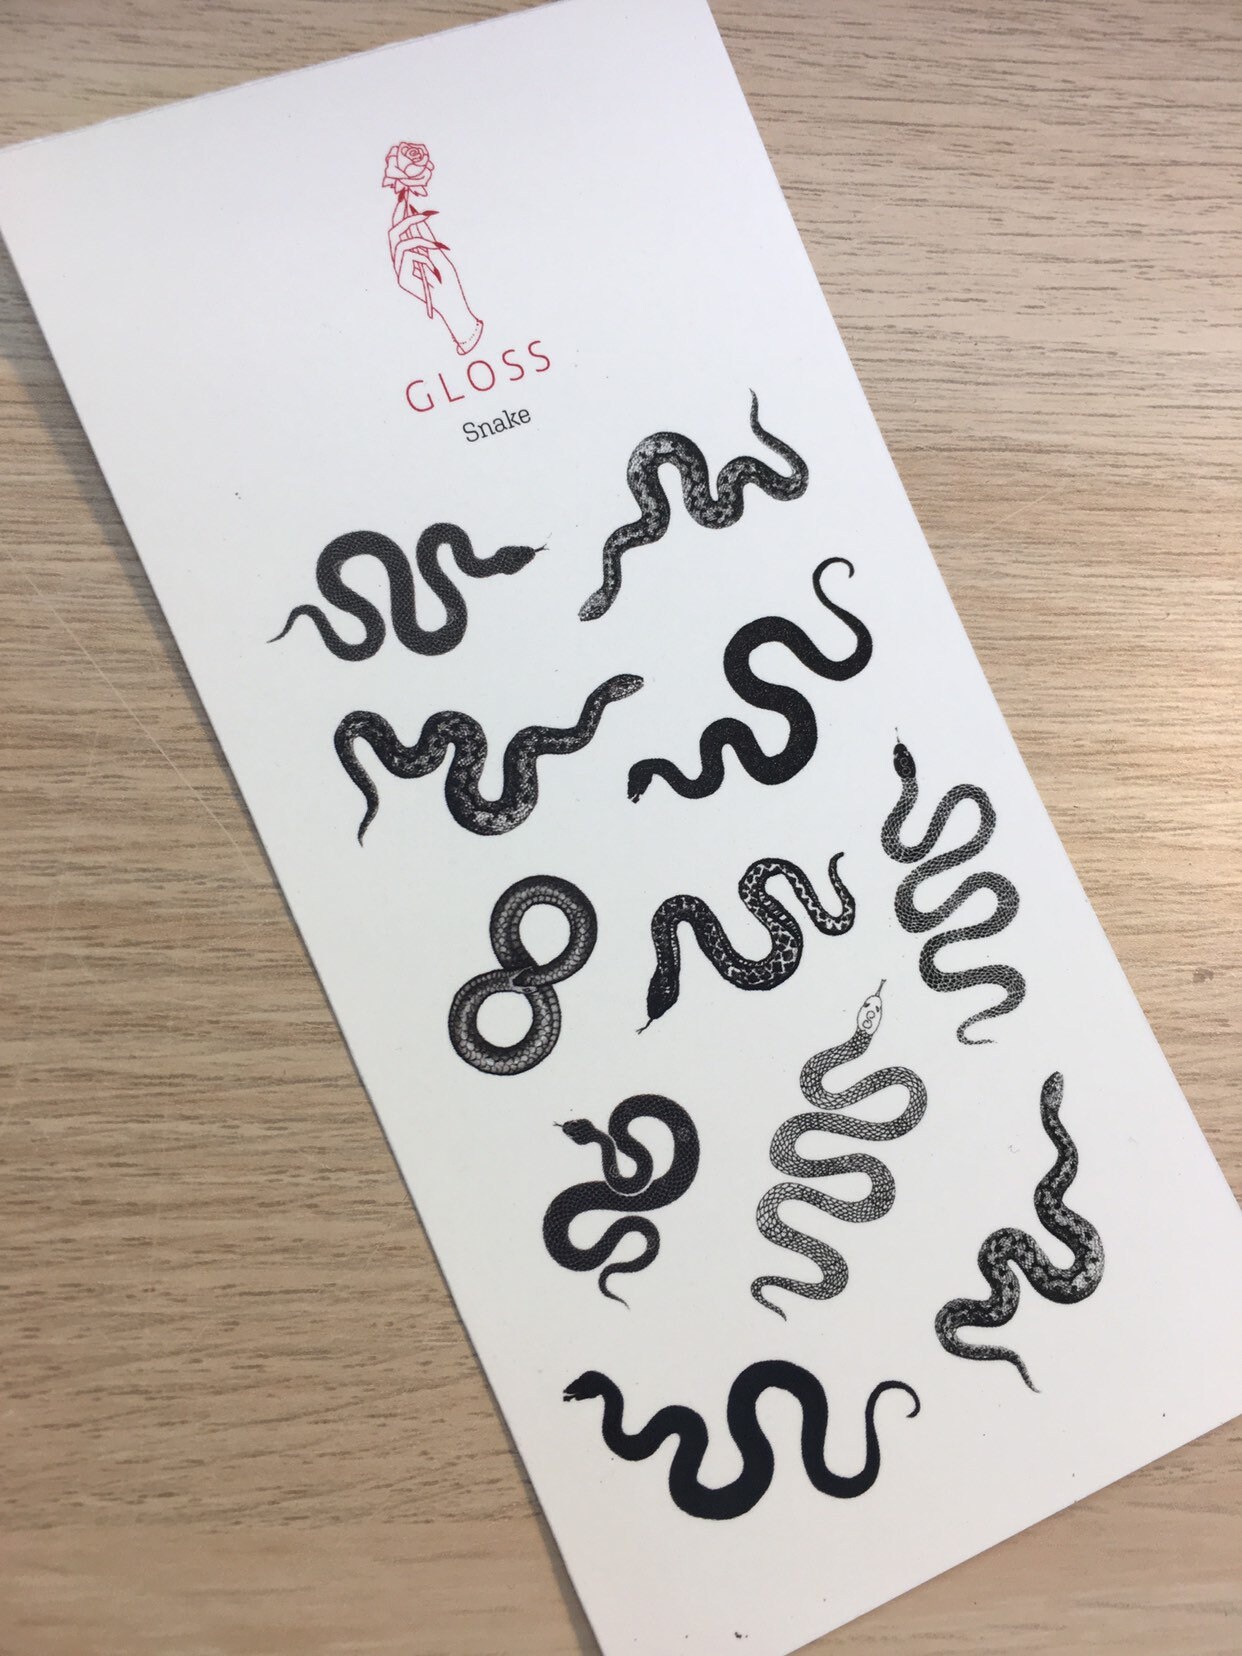 GLOSS
Snake